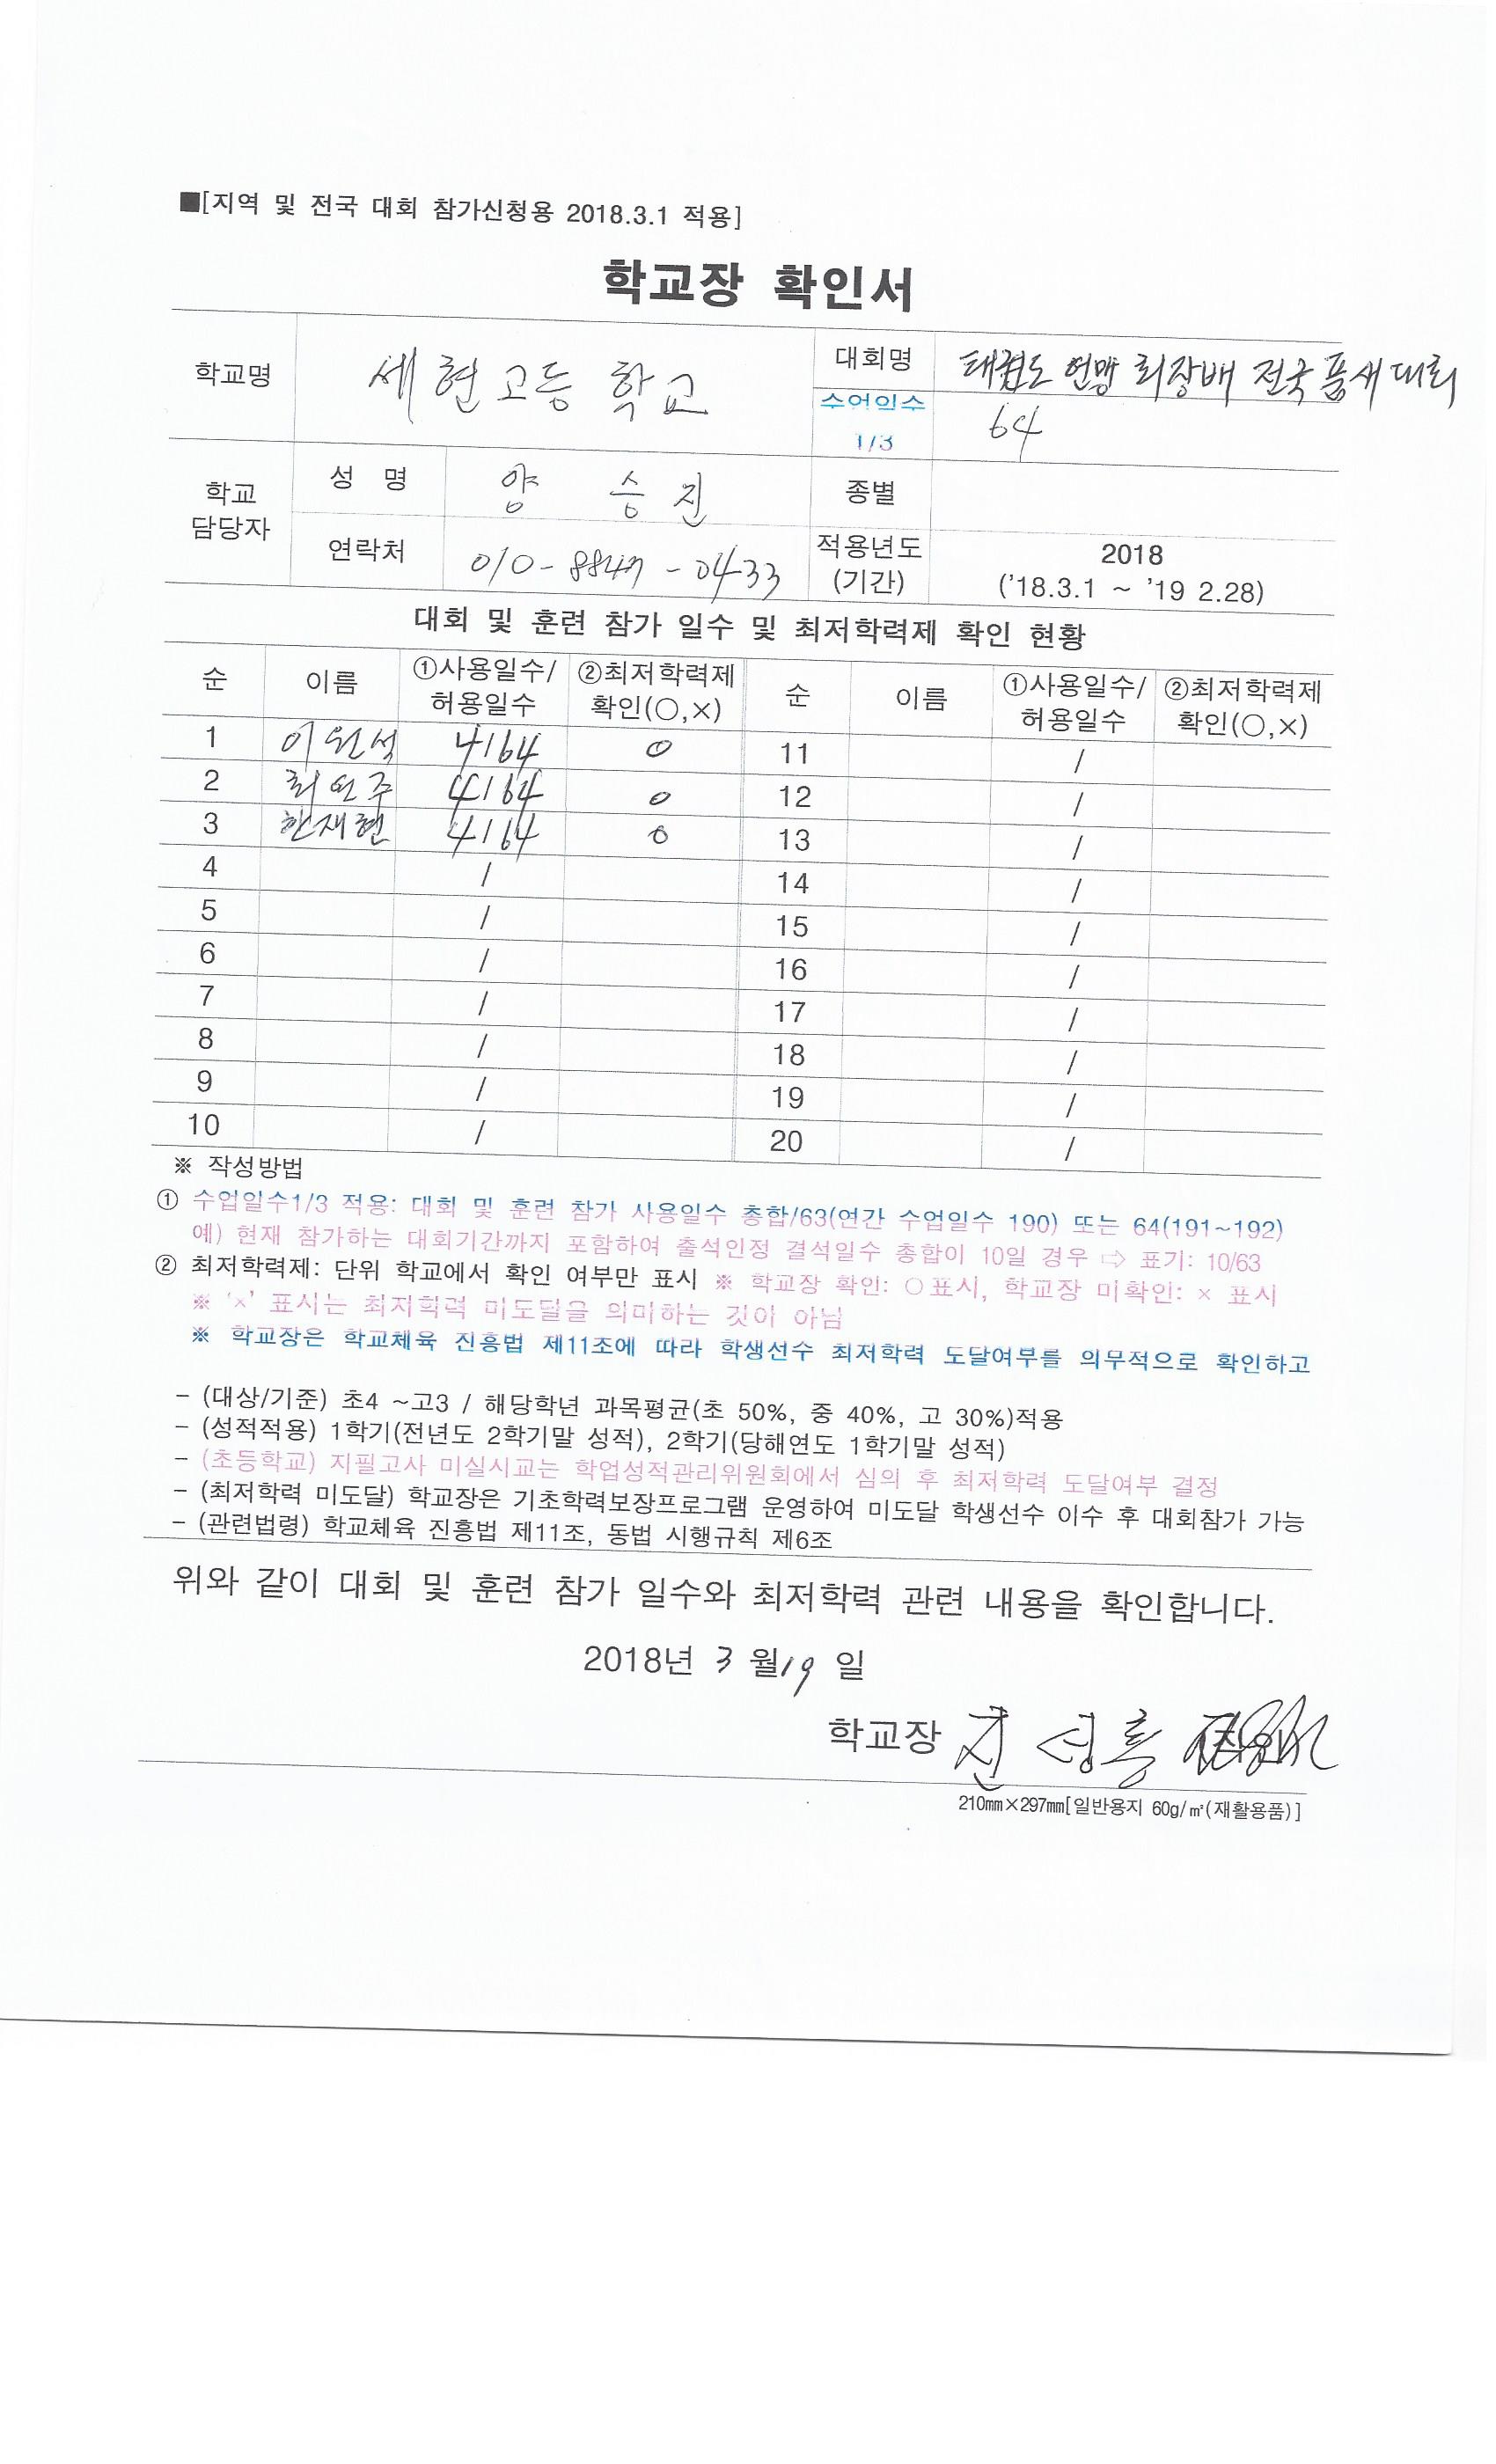 ■[지역 및 전국 대회 참가신청용 2018.3.1 적용]
학교장 확인서
학교명 세현고등학교 대회명 태권도 연맹 회장배 전국 품새대회
수업일수 1/3 64
학교 담당자 성 명 양승진 종별
연락처 010-8847-0433 적용년도 (기간) 2018 ('18.3.1 ~ '19 2.28)
대회 및 훈련 참가 일수 및 최저학력제 확인 현황
순 이름 ①사용일수/허용일수 ②최저학력제 확인(○,×) 순 이름 ①사용일수/허용일수 ②최저학력제 확인(○,×)
1 이원석 4/64 ○ 11 /
2 최연주 4/64 ○ 12 /
3 한재현 4/64 ○ 13 /
4 / 14 /
5 / 15 /
6 / 16 /
7 / 17 /
8 / 18 /
9 / 19 /
10 / 20 /
※ 작성방법
① 수업일수1/3 적용: 대회 및 훈련 참가 사용일수 총합/63(연간 수업일수 190) 또는 64(191~192)
예) 현재 참가하는 대회기간까지 포함하여 출석인정 결석일수 총합이 10일 경우 ⇨ 표기: 10/63
② 최저학력제: 단위 학교에서 확인 여부만 표시 ※ 학교장 확인: ○표시, 학교장 미확인: × 표시
※ '×' 표시는 최저학력 미도달을 의미하는 것이 아님
※ 학교장은 학교체육 진흥법 제11조에 따라 학생선수 최저학력 도달여부를 의무적으로 확인하고
- (대상/기준) 초4 ~고3 / 해당학년 과목평균(초 50%, 중 40%, 고 30%)적용
- (성적적용) 1학기(전년도 2학기말 성적), 2학기(당해연도 1학기말 성적)
- (초등학교) 지필고사 미실시교는 학업성적관리위원회에서 심의 후 최저학력 도달여부 결정
- (최저학력 미도달) 학교장은 기초학력보장프로그램 운영하여 미도달 학생선수 이수 후 대회참가 가능
- (관련법령) 학교체육 진흥법 제11조, 동법 시행규칙 제6조
위와 같이 대회 및 훈련 참가 일수와 최저학력 관련 내용을 확인합니다.
2018년 3 월 19 일
학교장
210㎜×297㎜[일반용지 60g/㎡(재활용품)]